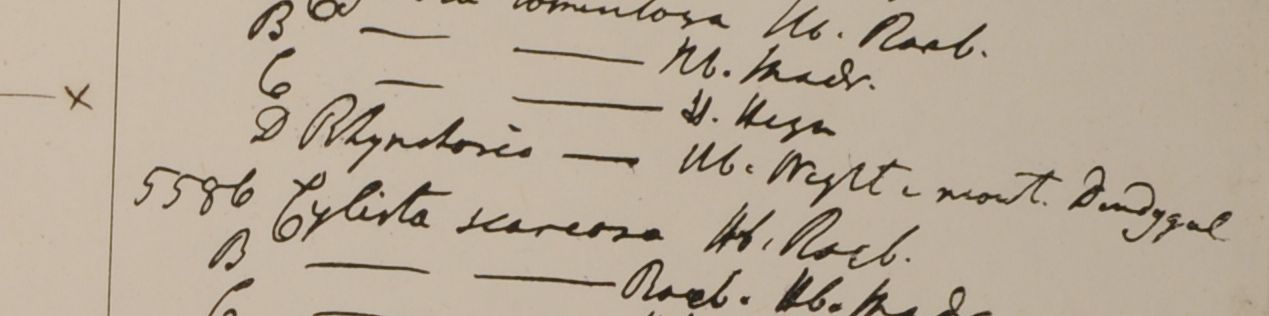 tomentosa Hb. Roxb.
B — — Hb. Madr.
C — — H. Heyn
D Rhynchosia — Hb. Wight e mont. Dindygul
5586 Cylista scareosa Hb. Roxb.
B — — Roxb. Hb. Madr
C —